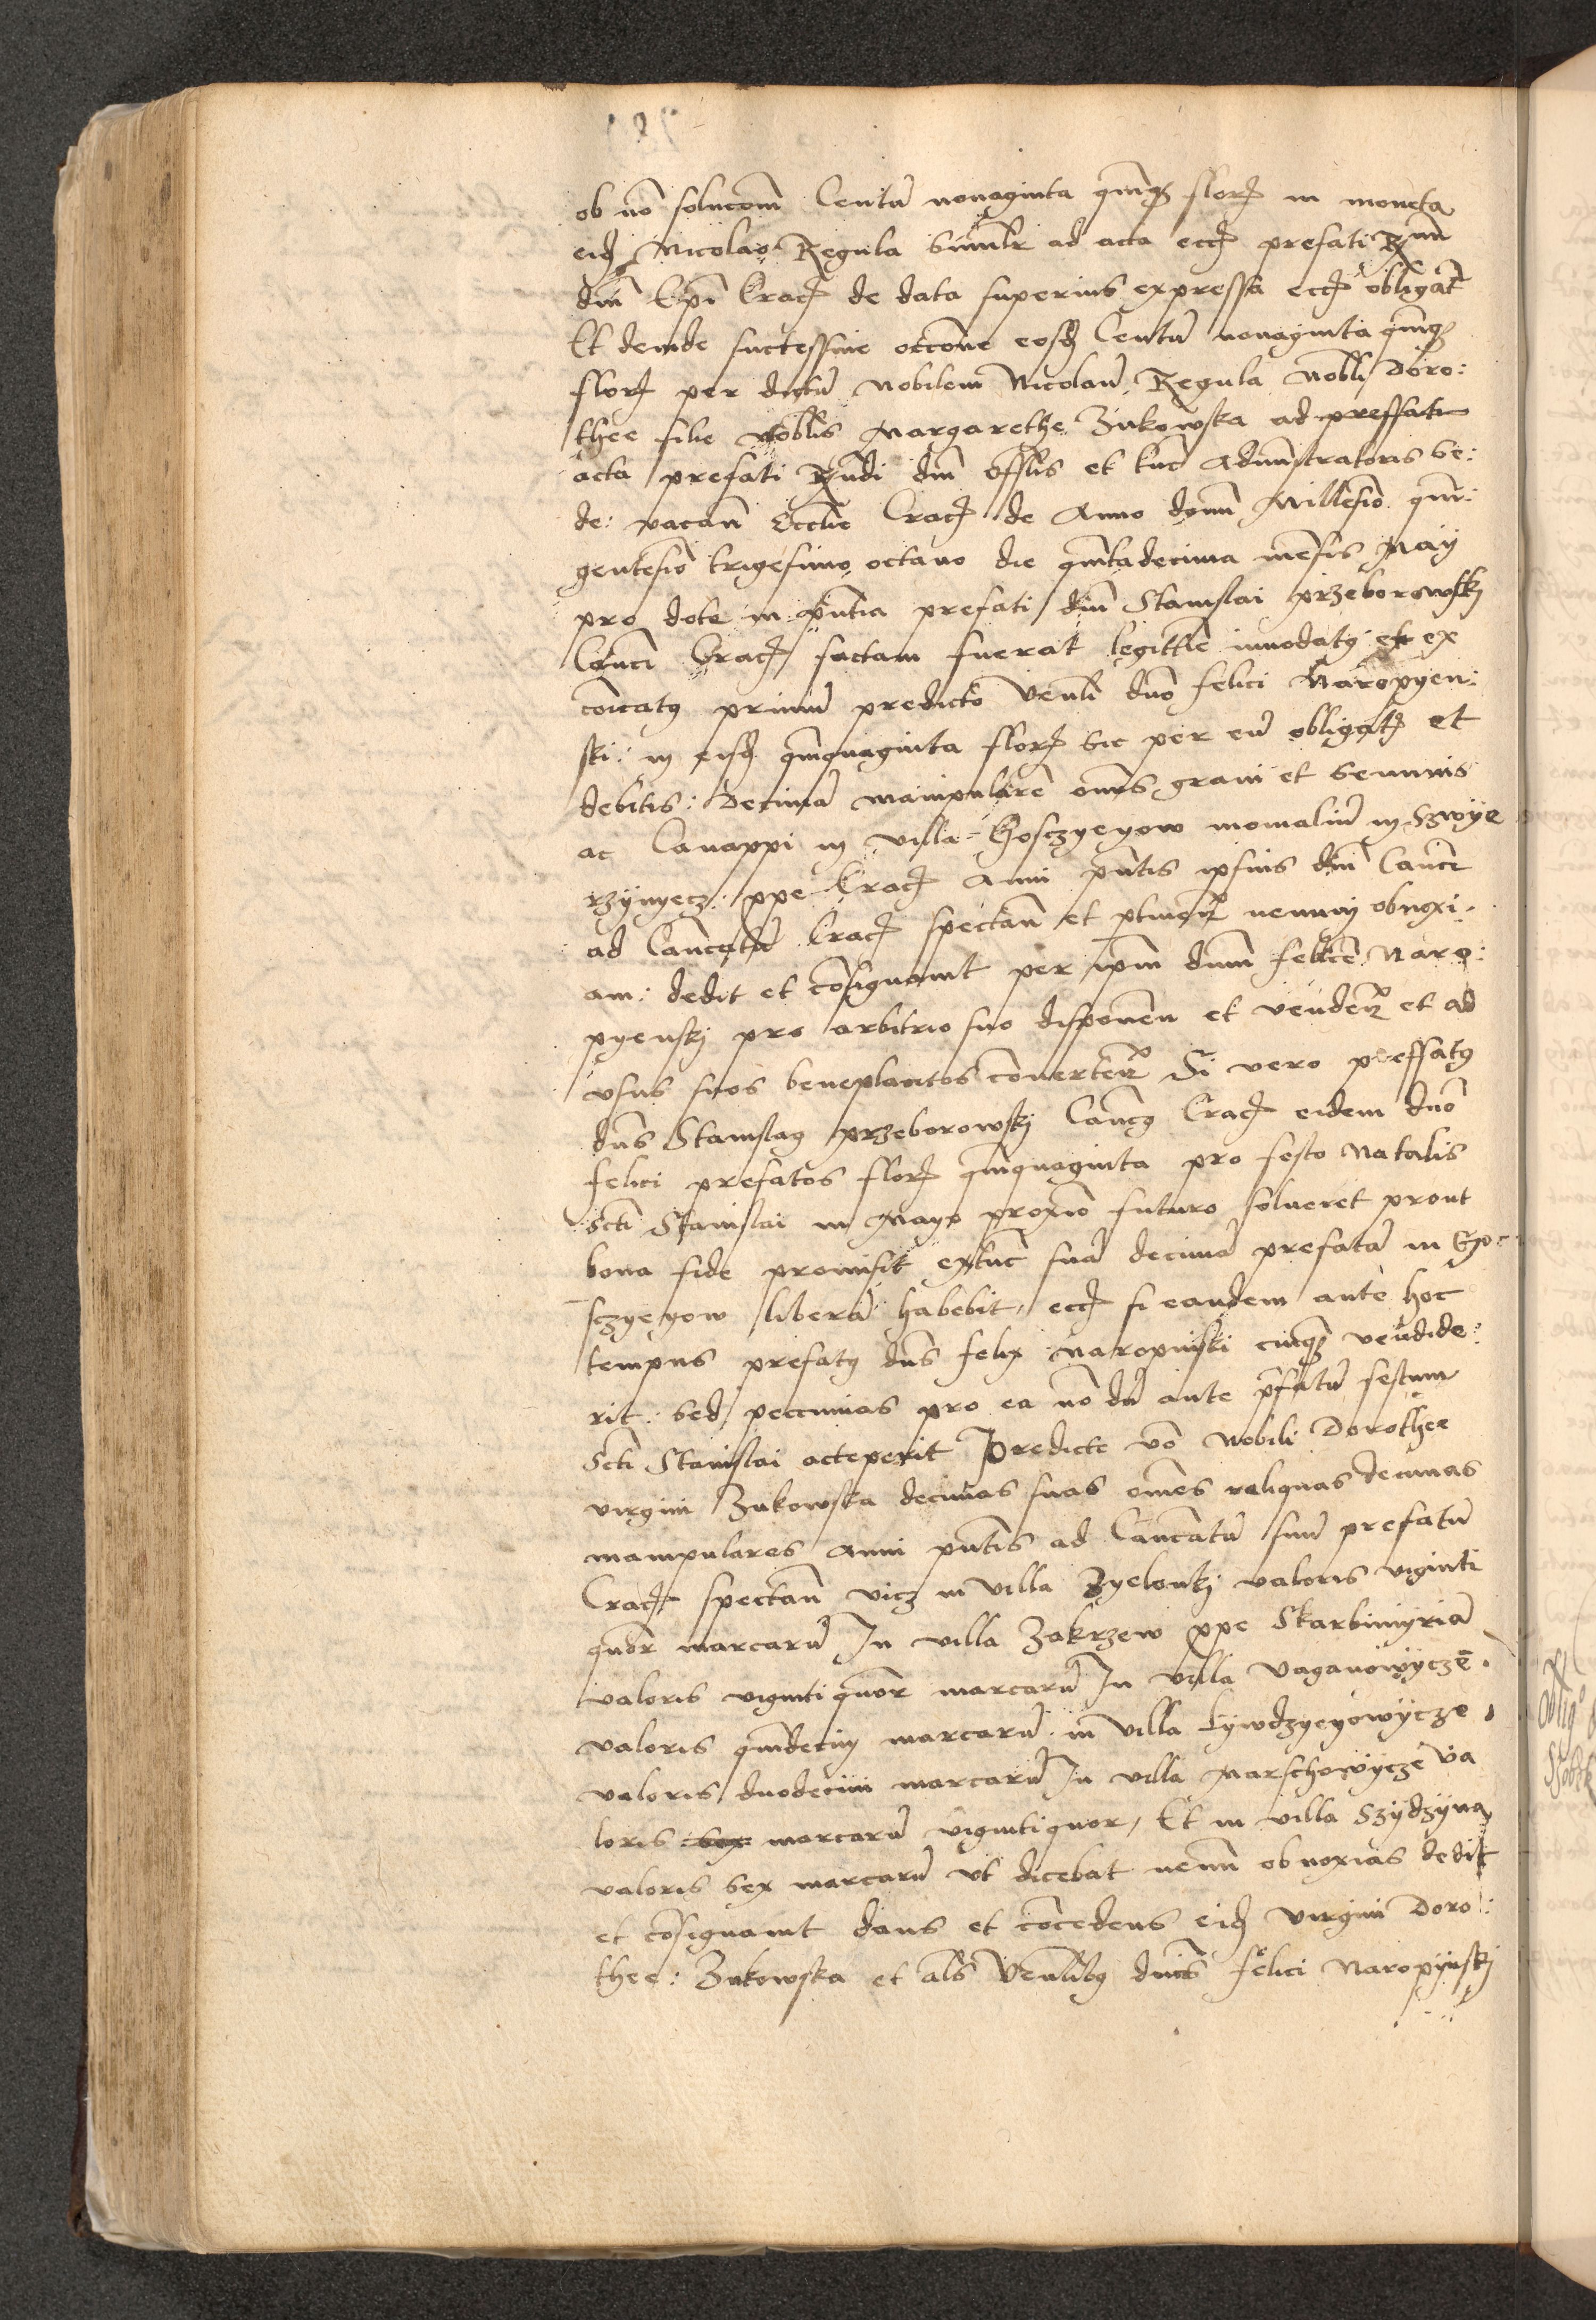 ob nō solucōm Centū nonaginta qnq̨ florȝ in moneta
eidȝ Nicolao Regula simīlr ad acta ecciȝ prefati Rmi
dni Epī Cracȝ de data superius expressa ecciȝ obligat
Et deinde successiue occone eosdȝ Centū nonaginta qnq̨
florȝ per dictū nobilem Nicolaū Regula nobli Doro:
thee filie noblis Margarethe Zukowska ad preffati
acta prefati Rndi dni Offlis et tunc Admīstratoris se:
de: vacan Ecclie Cracȝ de Anno domi Millesio qm̄:
gentesio trigesimo octauo die qntadecima mēsis May
pro dote in pntia prefati dni Stanislai przeborowskj
Cancī Cracȝ factam fuerat legittīe innodatꝯ et ex
cōicatꝯ primū predicto Venli dno felici Naropyen:
ski: in eisdȝ qnquaginta florȝ sic per eū obligatȝ et
debitis: Decimā manipularē ouīs grani et seminis
ac Canappi in villa Goszczyeyow monialiū in Szwye
rzynyecz: ppe Cracȝ anni pntis ipsius dni Cancī
ad Cancatū Cracȝ spectan et ptinen nemini obnoxi:
am: dedit et cōsignauit per ipm dnm felicē Naro:
pyenskj pro arbitrio suo disponen et venden et ad
vsus suos beneplacitos cōuerten Si vero preffatꝯ
dns Stanislaꝯ przeborowskj Cancꝯ Cracȝ eidem dno
felici prefatos florȝ qnquaginta pro festo Natalis
Scti Stanislai in Mayo proxīo futuro solueret prout
bona fide promisit extunc suā decimā prefatā in Go:
sczyeyow liberā habebit, ecciȝ si eandem ante hoc
tempus prefatꝯ dns felix Naropinski cuiqȝ vendide:
rit: sed peccunias pro ea nō dū ante pfatū festum
Scti Stanislai acceperit Predicte vō Nobili Dorothee
virgini Zukowska decimas suas omēs reliquas decimas
manipulares anni pntis ad Cancatū suū prefatū
Cracȝ spectan vicȝ in villa Zyelonkj valoris viginti
quor marcarū In villa Zakrzew ppe Skarbimyriā
valoris viginti quor marcarū In villa vaganowycze
valoris qndecim marcarū in villa Lywdzyeyowycze
valoris duodecim marcarū In villa Marschowycze va
loris sex marcarū viginti quor, Et in villa Szydzyna
valoris sex marcarū vt dicebat nemī obnoxias dedit
et cōsignauit dans et cōcedens eidȝ virgini Doro:
thee: Zukowska et als Venlibꝯ dnis felici Naropynskj